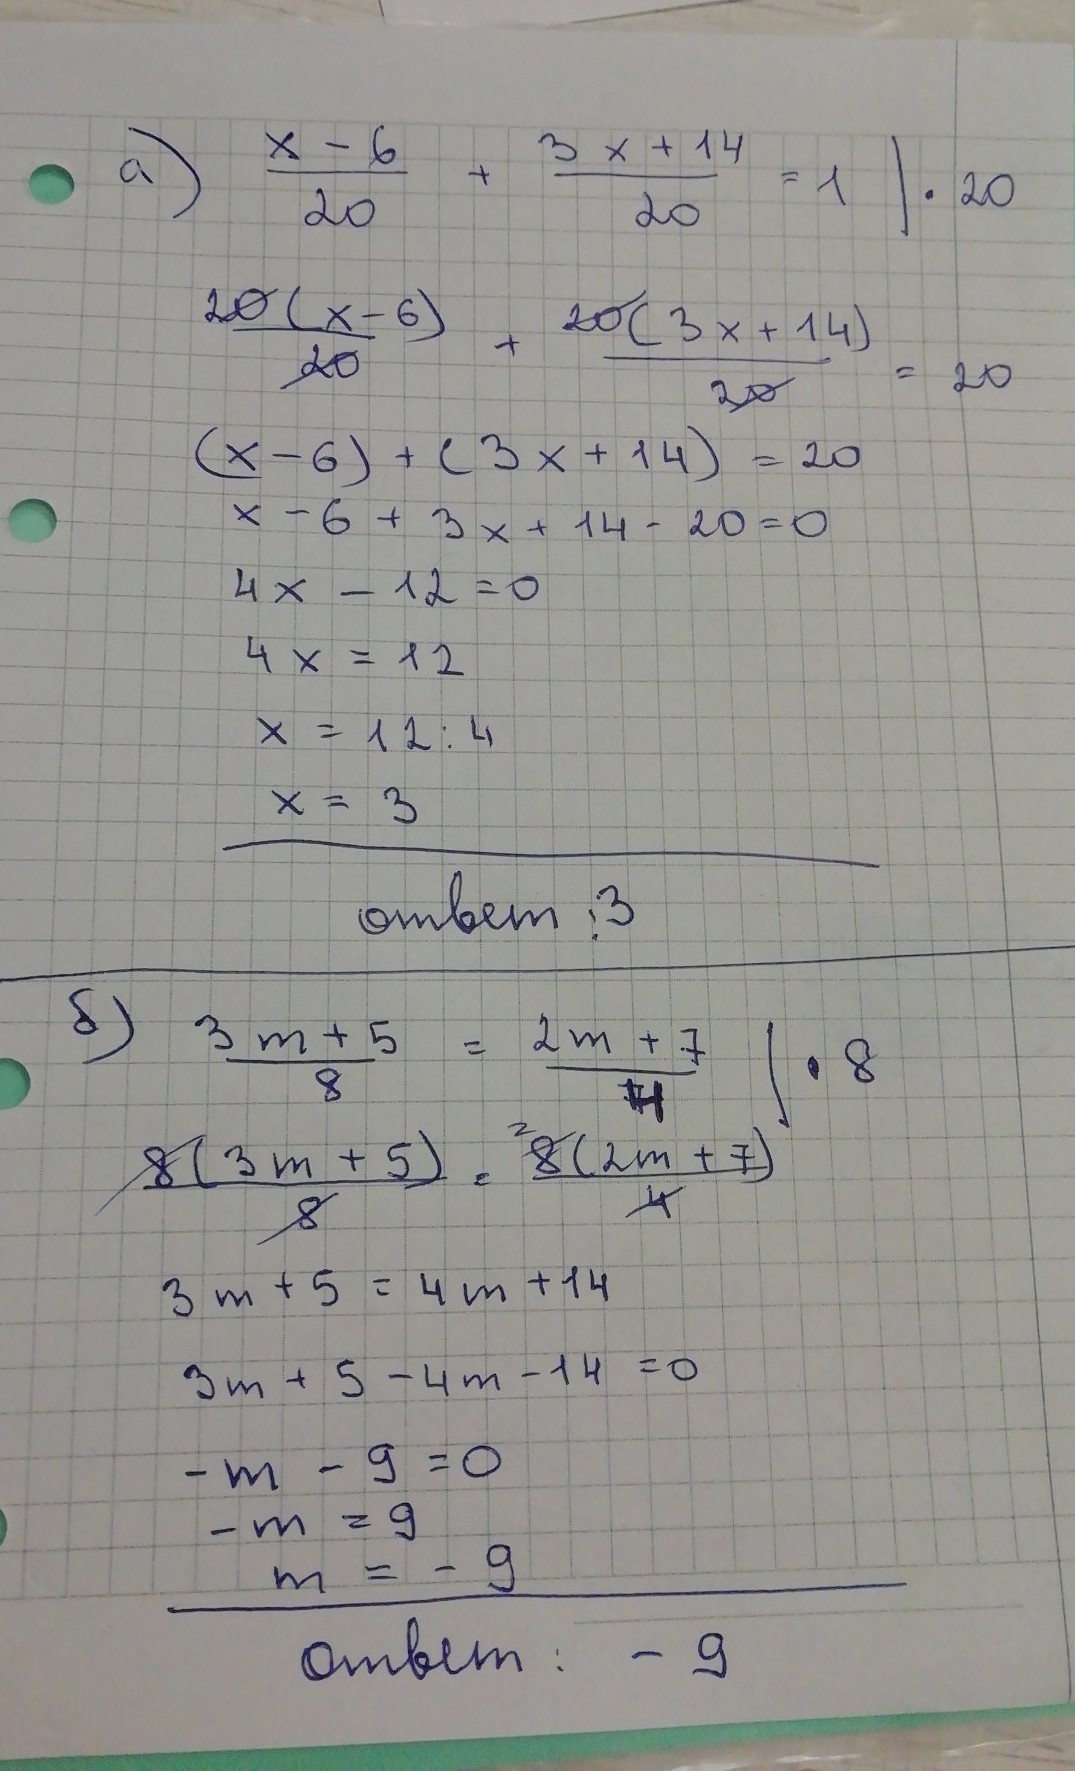 а) (x - 6)/20 + (3x + 14)/20 = 1 | · 20
20(x - 6)/20 + 20(3x + 14)/20 = 20
(x - 6) + (3x + 14) = 20
x - 6 + 3x + 14 - 20 = 0
4x - 12 = 0
4x = 12
x = 12 : 4
x = 3
ответ : 3
б) (3m + 5)/8 = (2m + 7)/4 | · 8
8(3m + 5)/8 = ²8(2m + 7)/4
3m + 5 = 4m + 14
3m + 5 - 4m - 14 = 0
-m - 9 = 0
-m = 9
m = -9
ответ : - 9